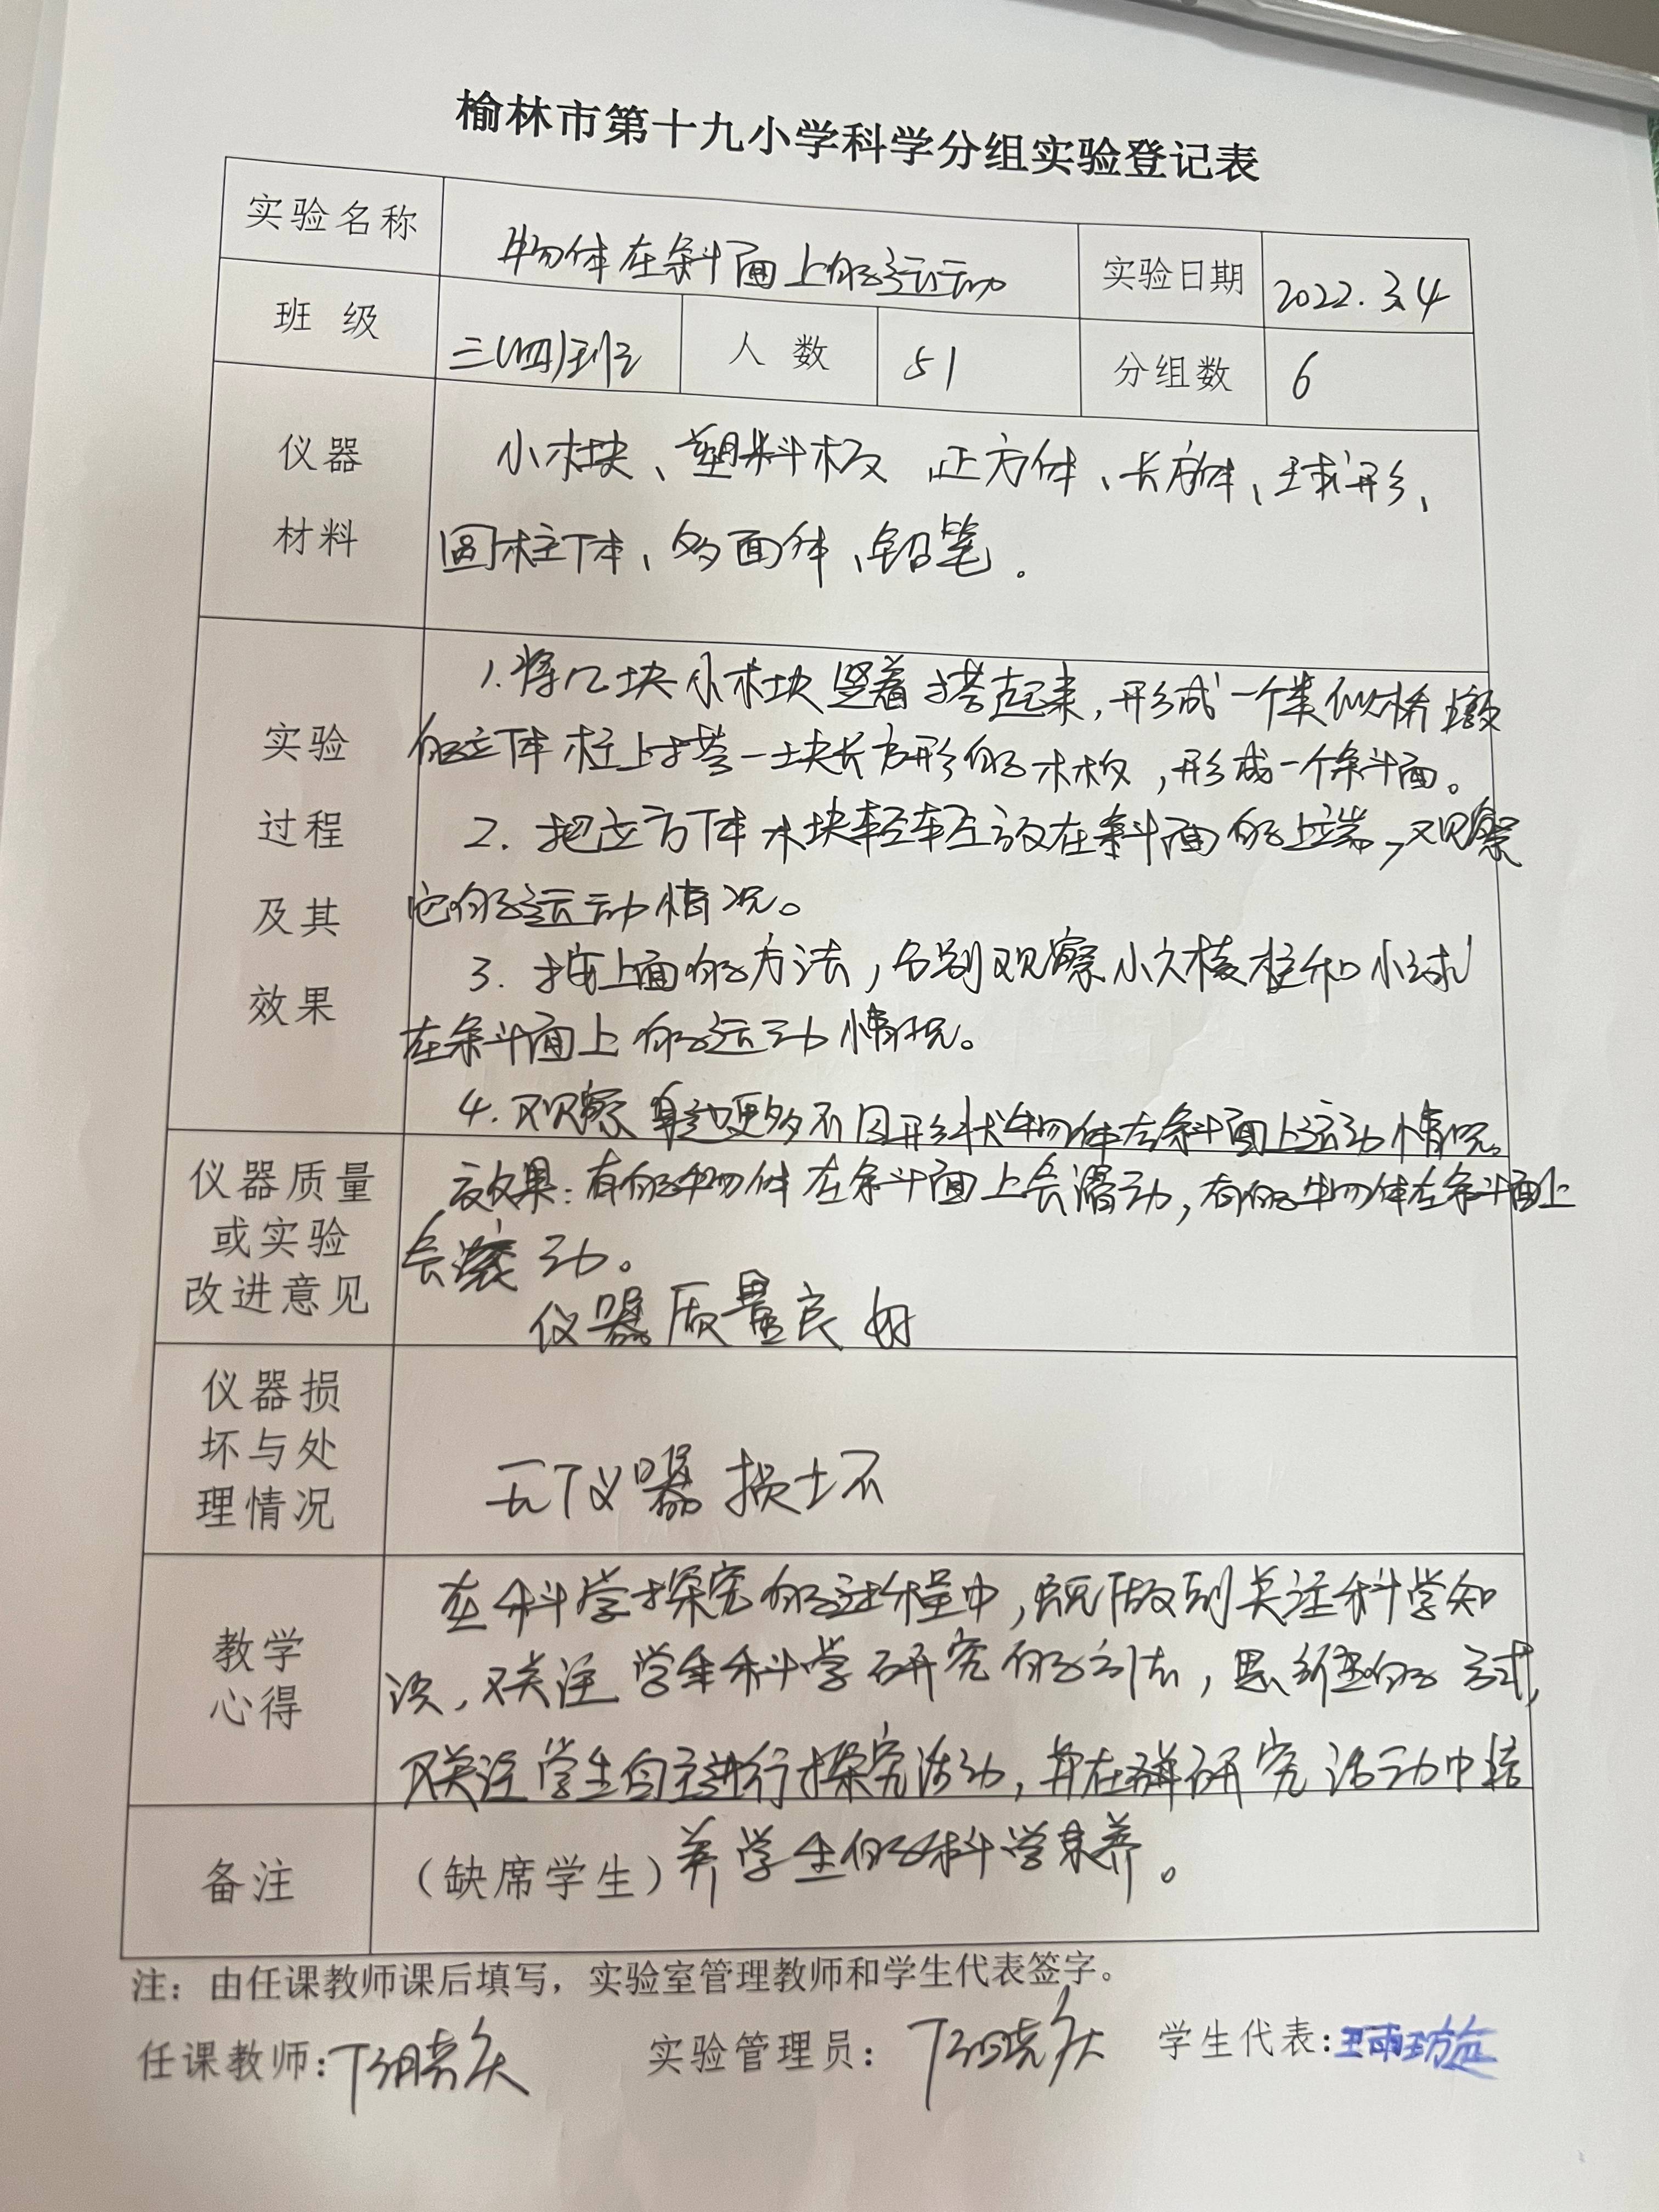 榆林市第十九小学科学分组实验登记表
实验名称 物体在斜面上的运动 实验日期 2022.3.4
班级 三(四)班 人数 51 分组数 6
仪器
材料
小木块、塑料板 正方体、长方体、球形、
圆柱体、多面体、铅笔。
实验
过程
及其
效果
1.将几块小木块竖着搭起来,形成一个类似桥墩
的立体柱上搭一块长方形的木板,形成一个斜面。
2.把立方体木块轻轻放在斜面的上端,观察
它的运动情况。
3.按上面的方法,分别观察小六棱柱和小球
在斜面上的运动情况。
4.观察更多不同形状物体在斜面上运动情况。
仪器质量
或实验
改进意见
效果:有的物体在斜面上会滑动,有的物体在斜面上
会滚动。
仪器质量良好
仪器损
坏与处
理情况
无仪器损坏
教学
心得
在科学探究的过程中,既做到关注科学知
识,又关注学生科学研究的方法,思维的方式,
又关注学生自主进行探究活动,并在研究活动中培
养学生的科学素养。
备注
(缺席学生)
注：由任课教师课后填写，实验室管理教师和学生代表签字。
任课教师: 实验管理员： 学生代表: